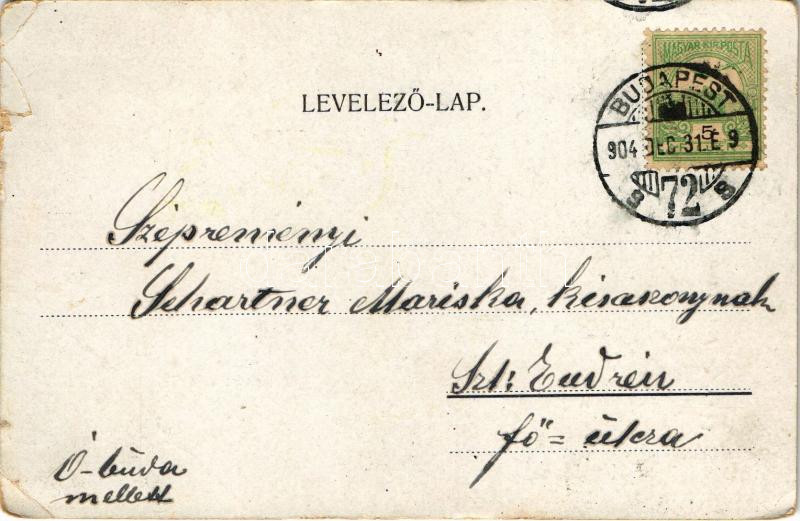 MAGYAR KIR. POSTA
5
LEVELEZŐ-LAP.
BUDAPEST
904 DEC 31. E 9
72
Szépreményi
Schartner Mariska, kisasszonynak
Szt: Endrén
fő= útcza
Ó-buda
mellett